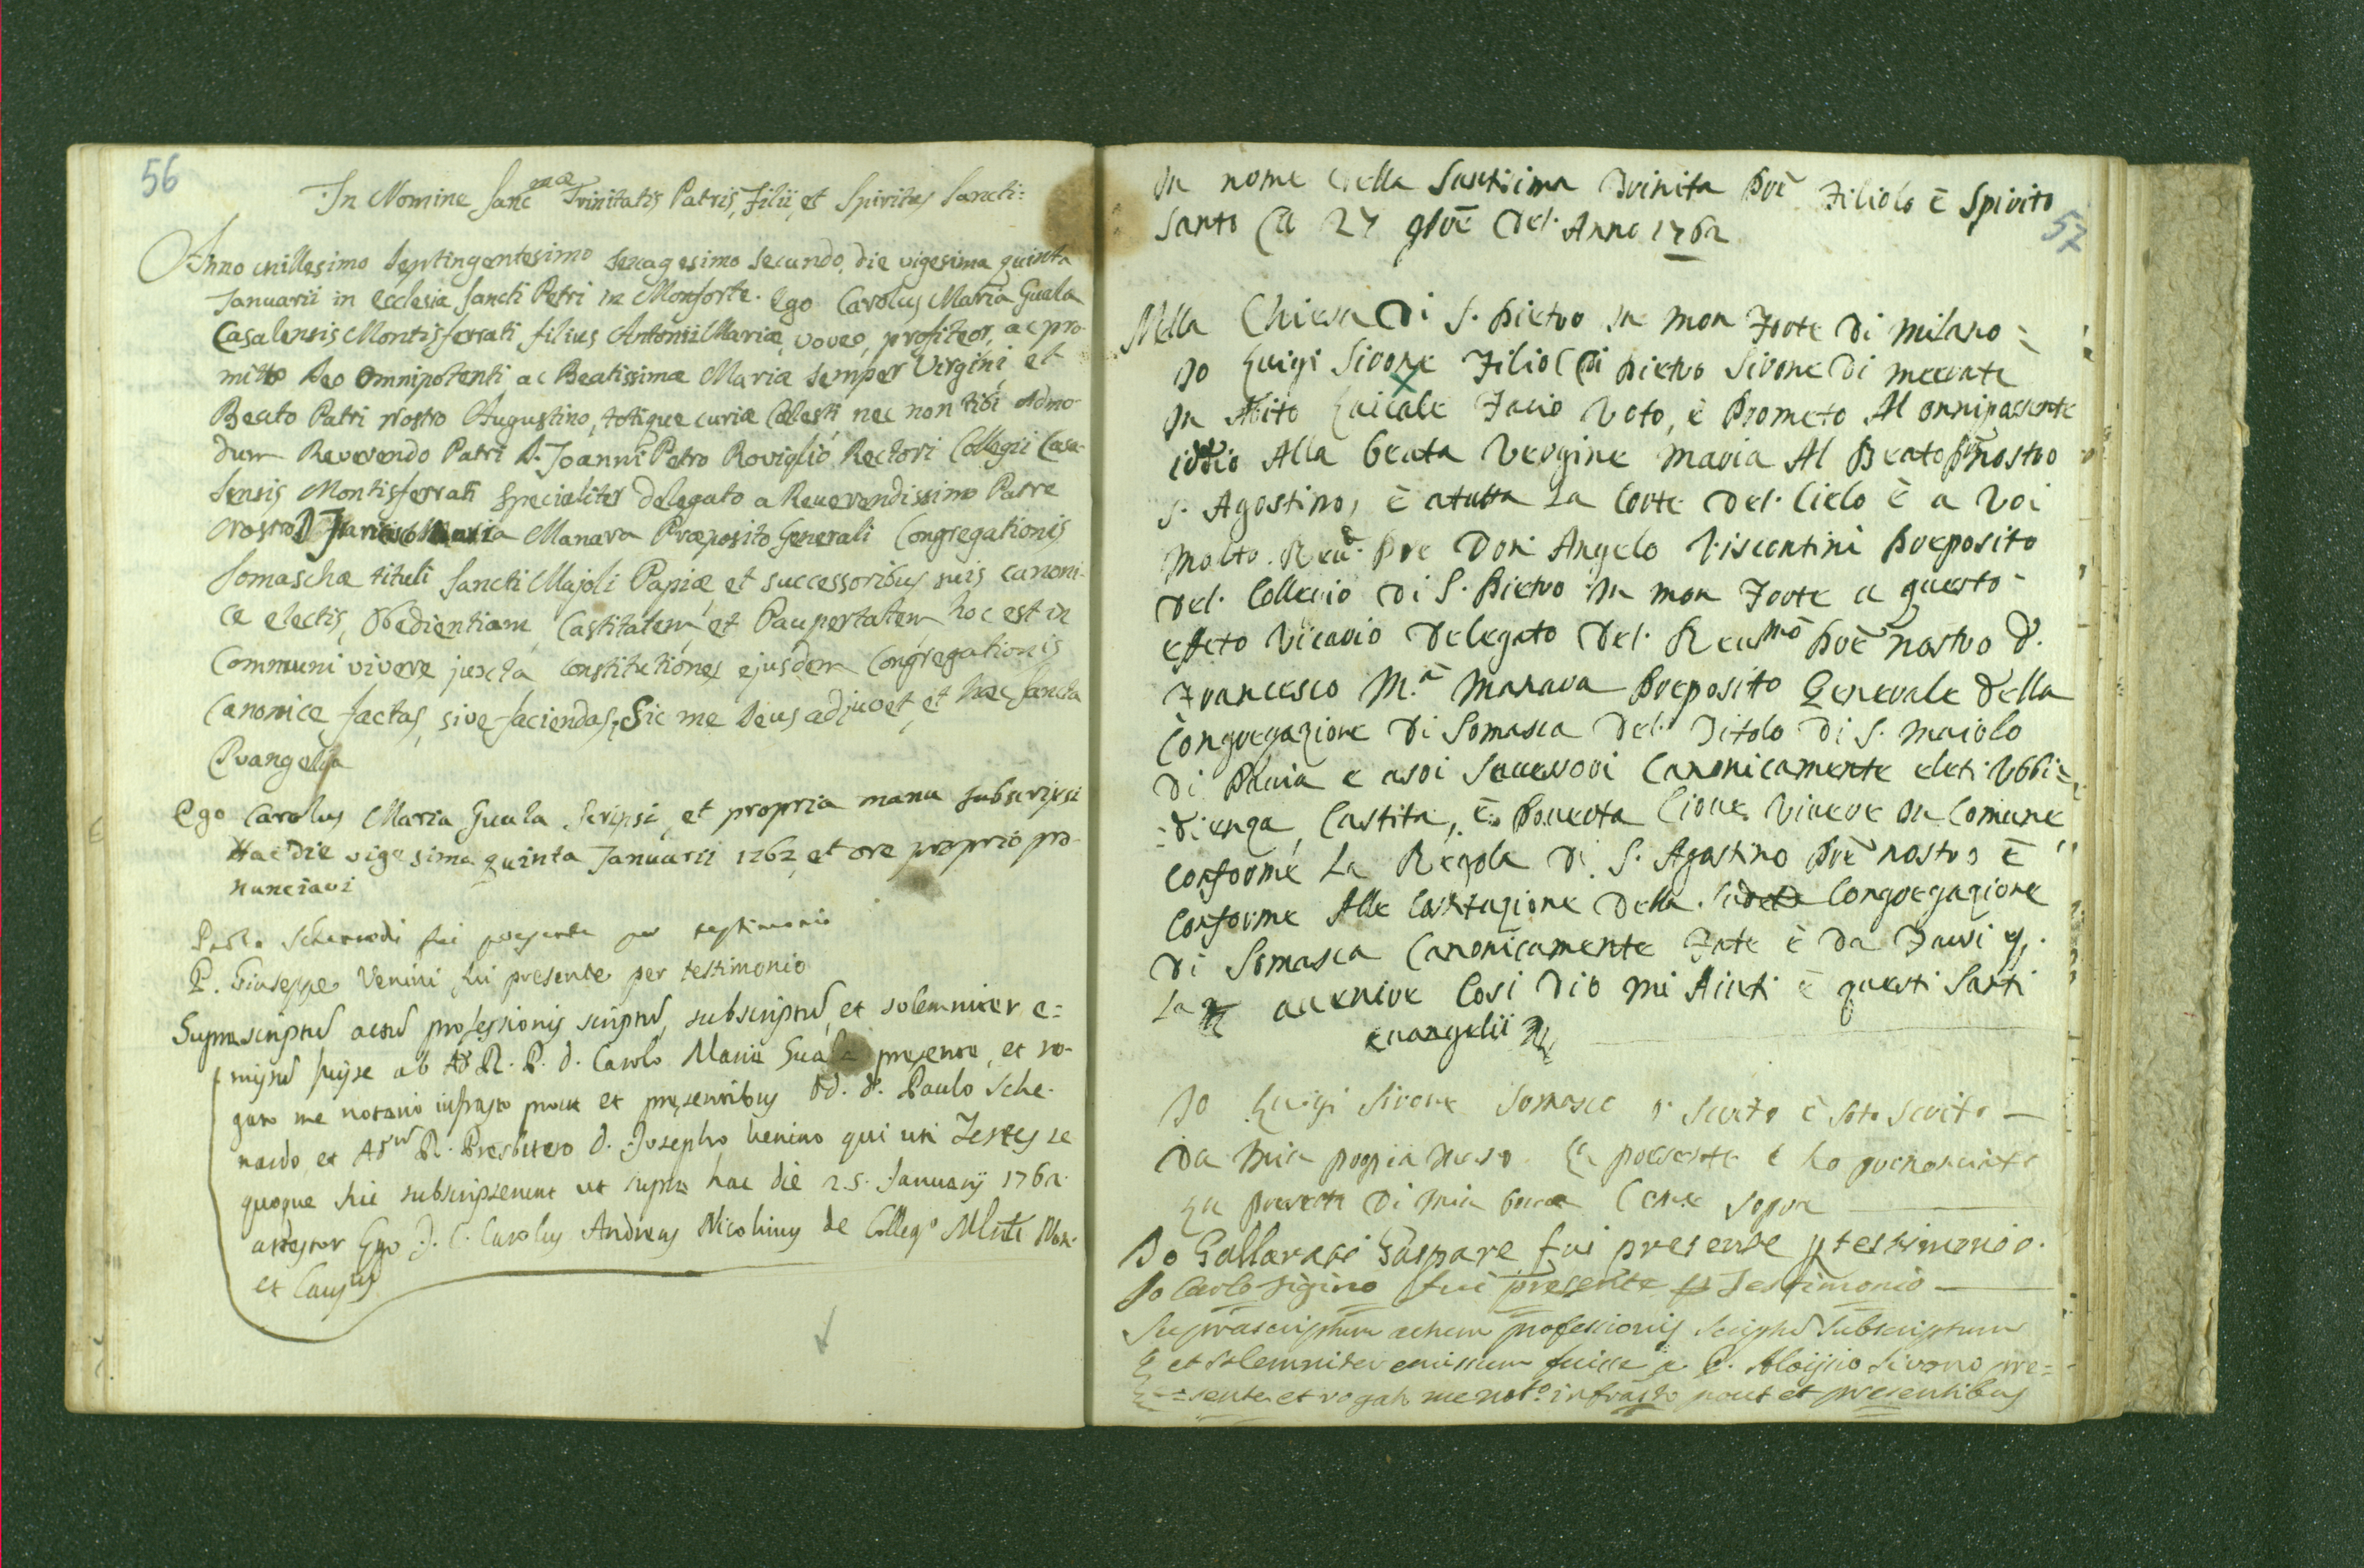 56
In Nomine Sanc^mæ Trinitatis Patris, Filii, et Spiritus Sancti:
Anno millesimo septingentesimo sexagesimo secundo, die vigesima quinta
Januarii in Ecclesia Sancti Petri in Monforte. Ego Carolus Maria Guala
Casalensis Montisferrati, filius Antonii Mariæ, voveo, profiteor, ac pro
mitto Deo Omnipotenti ac Beatissimæ Mariæ semper Virgini et
Beato Patri Nostro Augustino, totique curiæ Cælesti nec non tibi Admo
dum Reverendo Patri D. Joanni Petro Roviglio Rectori Collegii Casa-
lensis Montisferrati specialiter delegato a Reverendissimo Patre
Nostro D. Francisco Maria Manara Præposito Generali Congregationis
Somaschæ tituli Sancti Majoli Papiæ et successoribus suis canoni-
ce electis, Obedientiam, Castitatem, et Paupertatem, hoc est in
Communi vivere juxta constitutiones ejusdem Congregationis
Canonice factas, sive faciendas, Sic me Deus adjuvet, et hæc Sancta
Evangelia
Ego Carolus Maria Guala Scripsi, et propria manu subscripsi
Hac die vigesima quinta Januarii 1762, et ore proprio pro-
nunciavi
Paolo Schenardi fui presente per testimonio
P. Giuseppe Venini fui presente per testimonio
Suprascriptũ actũ professionis scriptũ, subscriptũ, et solemniter e=
missũ fuisse ab Ad. R. P. D. Carolo Maria Guala presente, et ro-
gato me notario infrasto prout et presentibus DD. D. Paulo Sche-
nardo et Ad^m R. Presbitero D. Josepho Venino qui uti Testes se
quoque hic subscripserunt ut supra hac die 25. Januarij 1762.
attestor Ego J. C. Carolus Andreas Nicolinus de Colleg^o Mlni Not.
et Caus^us
57
In nome della Santisima Trinita Prē Filiolo è Spirito
Santo A 27 9brē Del Anno 1762
Nella Chiesa Di S. Pietro in mon Forte Di milano =
Io Luigi Sirone Filiol Di Pietro Sirone Di mecrate
in Abito Laicale Facio Voto, è Prometo Al onnipotente
iddio Alla Beata Vergine Maria Al Beato Prē nostro
S. Agostino, è atutta La Corte Del Cielo è a Voi
Molto Reu. Pre Don Angelo Viscontini Preposito
Del Collecio Di S. Pietro in mon Forte a questo
effeto Vicario Delegato Del Reu^mo Prē nostro D.
Francesco M.^a Manara Preposito Generale Della
Congregazione Di Somasca Del Titolo Di S. Maiolo
Di Pauia e asoi Sucessori Canonicamente eleti Vbbi=
=dienza, Castita, è Pouerta Cioue Viuere in Comune
conforme La Regola Di S. Agostino Prē nostro è
conforme Alle Costituzione Della Sudeta Congregazione
Di Somasca Canonicamente Fate è Da Farsi p.
La auenire Cosi Dio mi Aiuti è questi Santi
euangelii
Io Luigi Sirone Somasco o Scrito è Soto Scrito
Da mia propia mano La presente è ho prenonciata
La presente Di mia boca Come Sopra
Io Gallarati Gaspare fui presente p testimonio.
Io Carlo Figino fui presente p Testimonio
Suprascriptum actum professionis Scriptũ Subscriptum
et solemniter emissum fuisse a C. Aloijsio Sirono pre=
=sente et rogato me not^o infrasto prout et presentibus